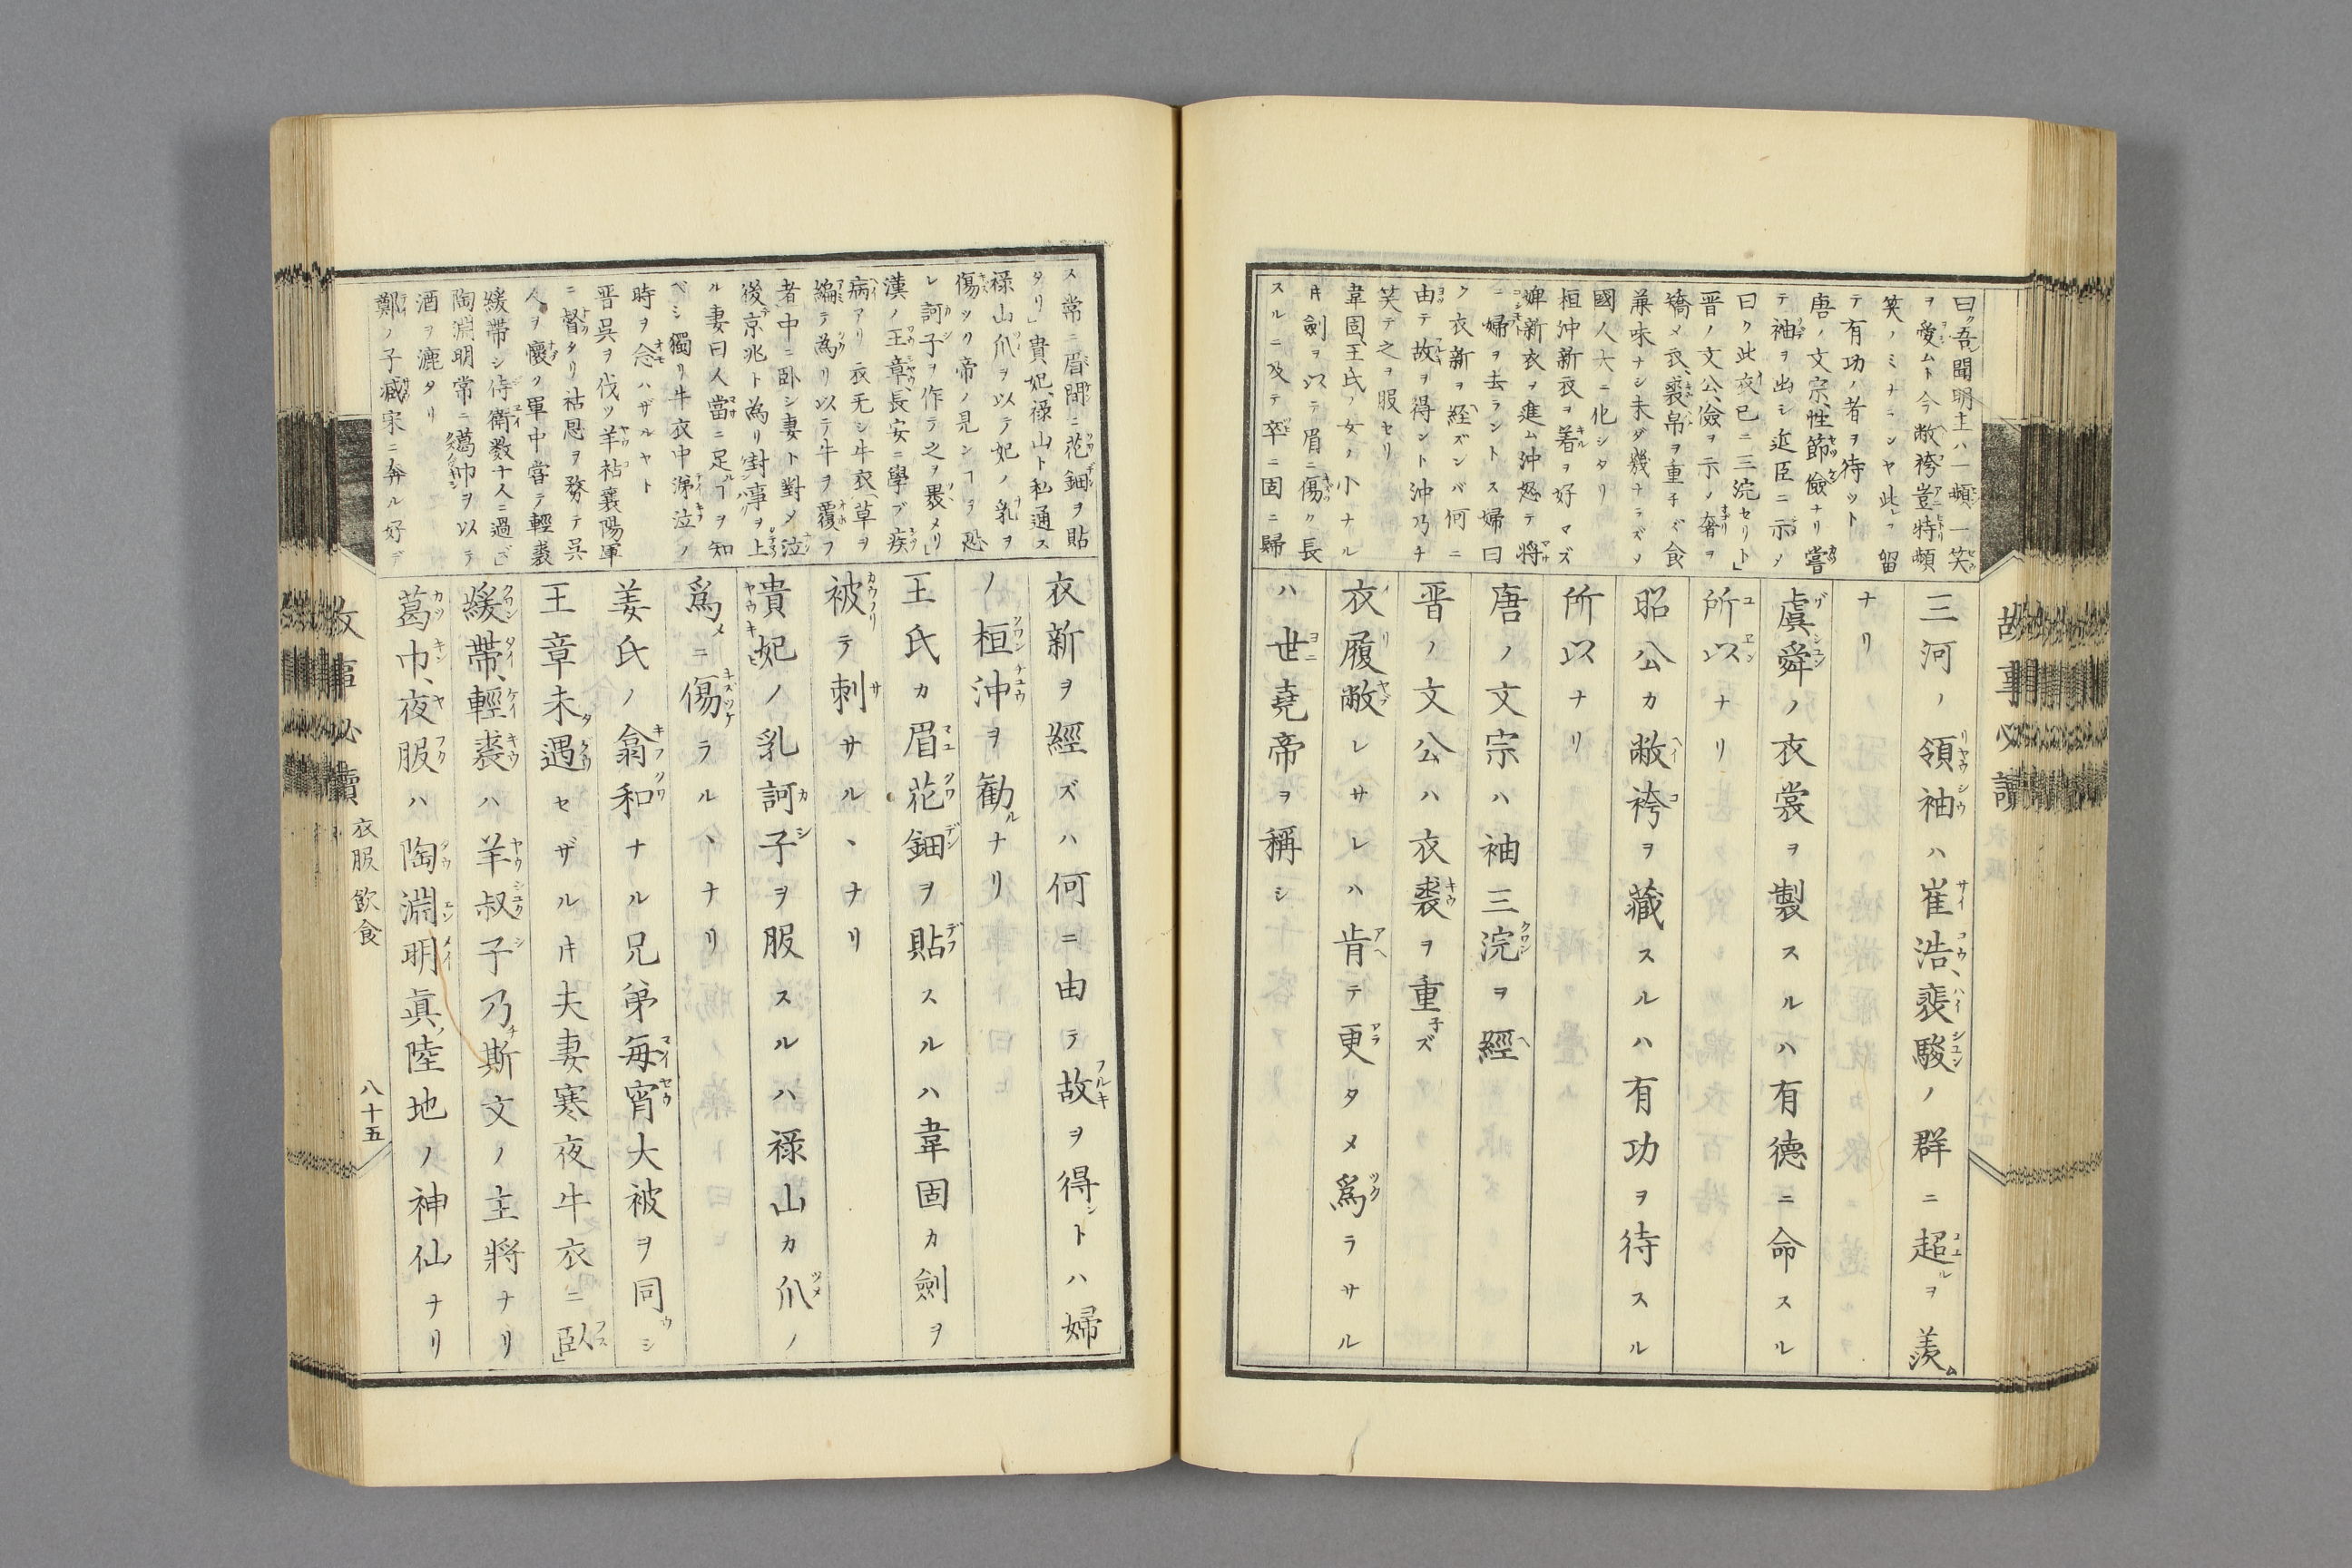 曰ク吾聞明主ハ一顰一笑
ヲ愛ムト今敝袴豈特顰
笑ノミナランヤ此ヲ留
テ有功ノ者ヲ待ツト
唐ノ文宗、性節儉ナリ嘗
テ袖ヲ出シ近臣ニ示メ
曰ク此衣已ニ三浣セリト」
晋ノ文公、儉ヲ示ノ奢ヲ
矯メ衣、裘帛ヲ重チズ食
兼味ナシ未ダ幾ナラズメ
國人大ニ化シタリ
桓沖新衣ヲ著ヲ好マズ
婢新衣ヲ進ム沖怒テ將
ニ婦ヲ去ラントス婦曰
ク衣新ヲ經ズンバ何ニ
由テ故ヲ得ント沖乃チ
笑テ之ヲ服セリ
韋固、王氏ノ女ノ小ナル
キ劍ヲ以テ眉ニ傷ク長
スルニ及テ卒ニ固ニ歸
三河ノ領袖ハ崔浩、裴駿ノ群ニ超ルヲ羨ム
ナリ
虞舜ノ衣裳ヲ製スルハ有德ニ命スル
所以ナリ
昭公カ敝袴ヲ藏スルハ有功ヲ待スル
所以ナリ
唐ノ文宗ハ袖三浣ヲ經
晋ノ文公ハ衣裘ヲ重子ズ
衣履敝レサレハ肯テ更タメ爲ラサル
ハ世堯帝ヲ稱シ
故事必讀
ス常ニ眉間ニ花鈿ヲ貼
タリ」貴妃、禄山ト私通ス
禄山爪ヲ以テ妃ノ乳ヲ
傷ツク帝ノ見ンヿヲ恐
レ訶子ヲ作テ之ヲ褁メリ」
漢ノ王章、長安ニ學ブ疾
病アリ衣无シ牛衣、草ヲ
編テ為リ以テ牛ヲ覆フ
者、中ニ卧シ妻ト對メ泣
後京兆ト為リ封事ヲ上
ル妻曰人當ニ足ルヿヲ知
ベシ獨リ牛衣中涕泣ノ
時ヲ念ハザルヤト
晋呉ヲ伐ツ羊祜襄陽軍
ニ督タリ祜恩ヲ務テ呉
人ヲ懷ク軍中嘗テ輕裘
緩帶シ侍衛数十人ニ過ズ」
陶淵明常ニ葛巾ヲ以テ
酒ヲ漉タリ
鄭ノ子臧宋ニ奔ル好デ
衣新ヲ經ズハ何ニ由テ故ヲ得ントハ婦
ノ桓沖ヲ勸ルナリ
王氏カ眉花鈿ヲ貼スルハ韋固カ劍ヲ
被テ刺サル、ナリ
貴妃ノ乳訶子ヲ服スルハ禄山カ爪ノ
爲メニ傷ラル、ナリ
姜氏ノ翕和ナル兄弟每宵大被ヲ同ウシ
王章未遇セザルキ夫妻寒夜牛衣ニ臥ス」
緩帶、輕裘ハ羊叔子乃チ斯文ノ主將ナリ
葛巾、夜服ハ陶淵明眞ノ陸地ノ神仙ナリ
故事必讀
衣服 飲食
八十五